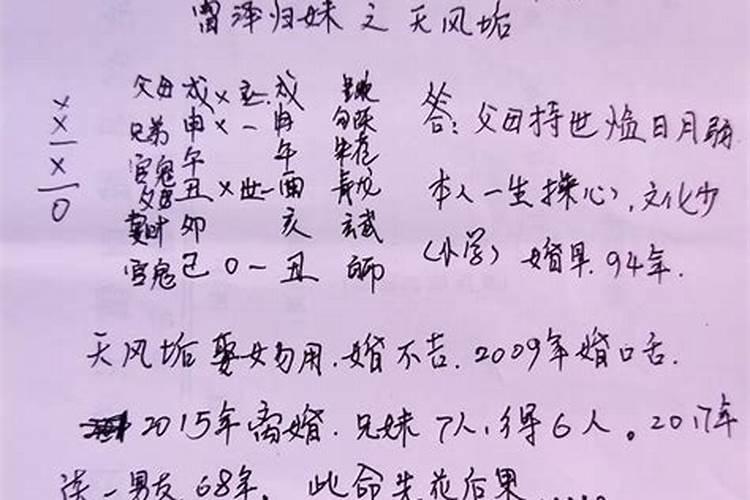 雷泽归妹之天风垢
x 父母戌x应.戌 
x 兄弟申x一申 勾陈
一 官鬼午 午 朱雀
x 父母丑x世一酉 青龙
一 妻财卯 亥 玄武
0 官鬼己0一丑
答:父母持世临日月弱
本人一生操心,文化少
(小学) 婚早.94年.
天风垢娶女勿用.婚不吉.2009年婚口舌.
2015年离婚.兄妹7人,得6人。2017年
一男友.68年. 此命先花后果.....